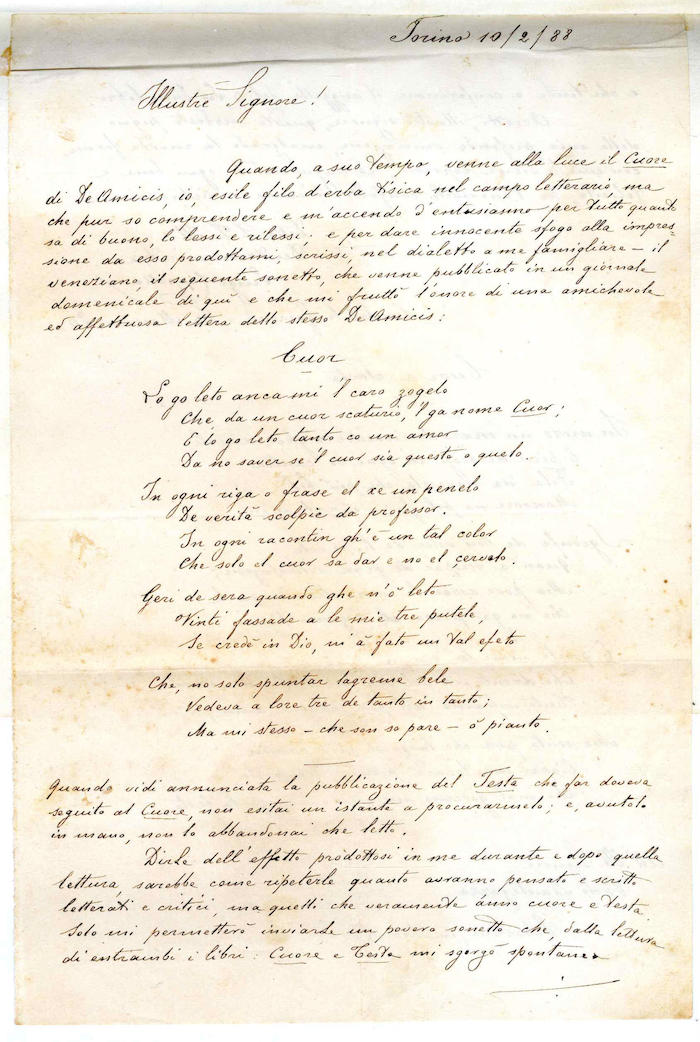 Torino 10/2/88
Illustre Signore!
Quando, a suo tempo, venne alla luce il Cuore
di De Amicis, io, esile filo d'erba tisica nel campo letterario, ma
che pur so comprendere e m'accendo d'entusiasmo per tutto quanto
sa di buono, lo lessi e rilessi; e per dare innocente sfogo alla impres=
sione da esso prodottami, scrissi, nel dialetto a me famigliare – il
veneziano, il seguente sonetto, che venne pubblicato in un giornale
domenicale di quì e che mi fruttò l'onore di una amichevole
ed affettuosa lettera dello stesso De Amicis:
Cuor
Lo go leto anca mi 'l caro zogelo
Che, da un cuor scaturio, 'l ga nome Cuor;
E lo go leto tanto co un amor
Da no saver se 'l cuor sia questo o quelo.
In ogni riga o frase el xe un penelo
De verità scolpie da professor.
In ogni racontin gh'è un tal color
Che solo el cuor sa dar e no el çervelo.
Geri de sera quando ghe n'ò leto
Vinti fassade a le mie tre putele,
Se credè in Dio, m'à fato un tal efeto
Che, no solo spuntar lagreme bele
Vedeva a lore tre de tanto in tanto;
Ma mi stesso – che son so pare – ò pianto.
Quando vidi annunciata la pubblicazione del Testa che far doveva
seguito al Cuore, non esitai un istante a procurarmelo; e, avutolo
in mano, non lo abbandonai che letto.
Dirle dell'effetto prodottosi in me durante e dopo quella
lettura, sarebbe come ripeterle quanto avranno pensato e scritto
letterati e critici, ma quelli che veramente anno cuore e testa.
Solo mi permetterò inviarle un povero sonetto che dalla lettura
di entrambi i libri: Cuore e Testa mi sgorgò spontaneo